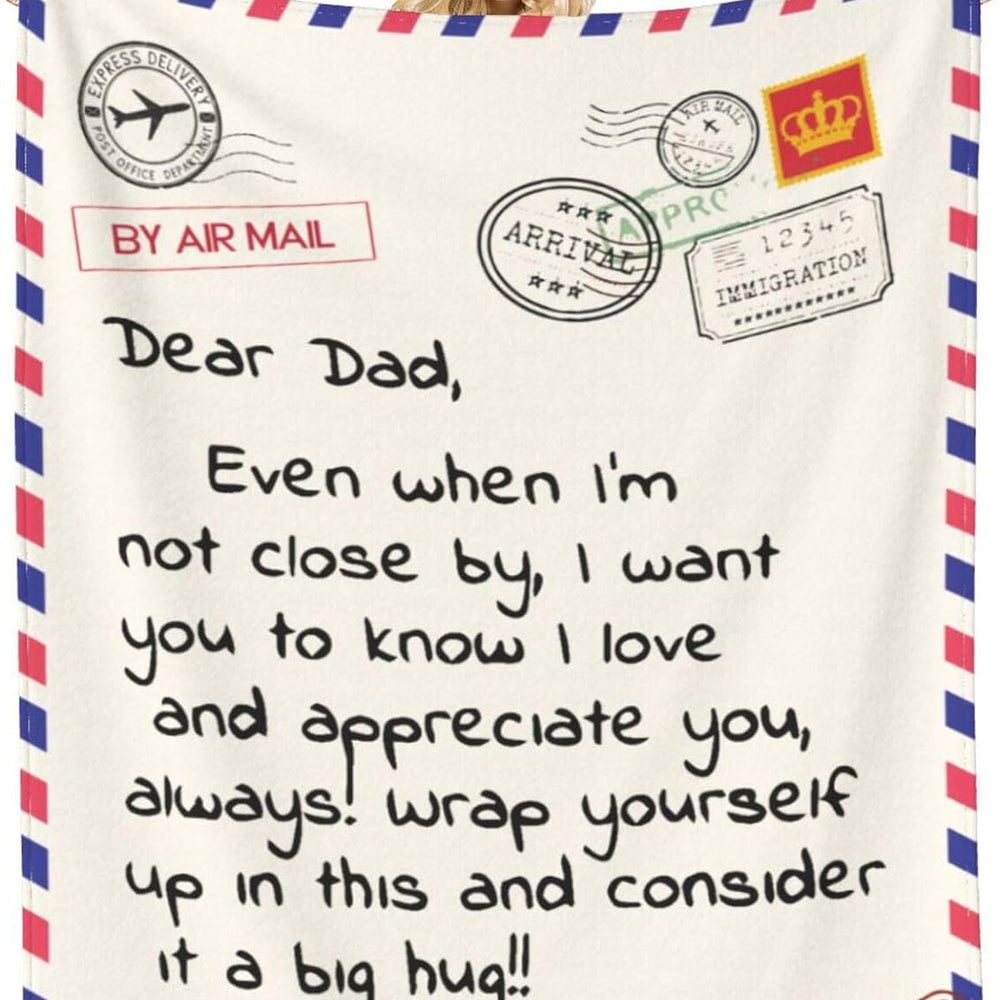 EXPRESS DELIVERY
POST OFFICE DEPARTMENT
AIR MAIL
BY AIR MAIL
ARRIVAL
APPRO
12345
IMMIGRATION
Dear Dad,
Even when I'm
not close by, I want
you to know I love
and appreciate you,
always! wrap yourself
up in this and consider
it a big hug!!